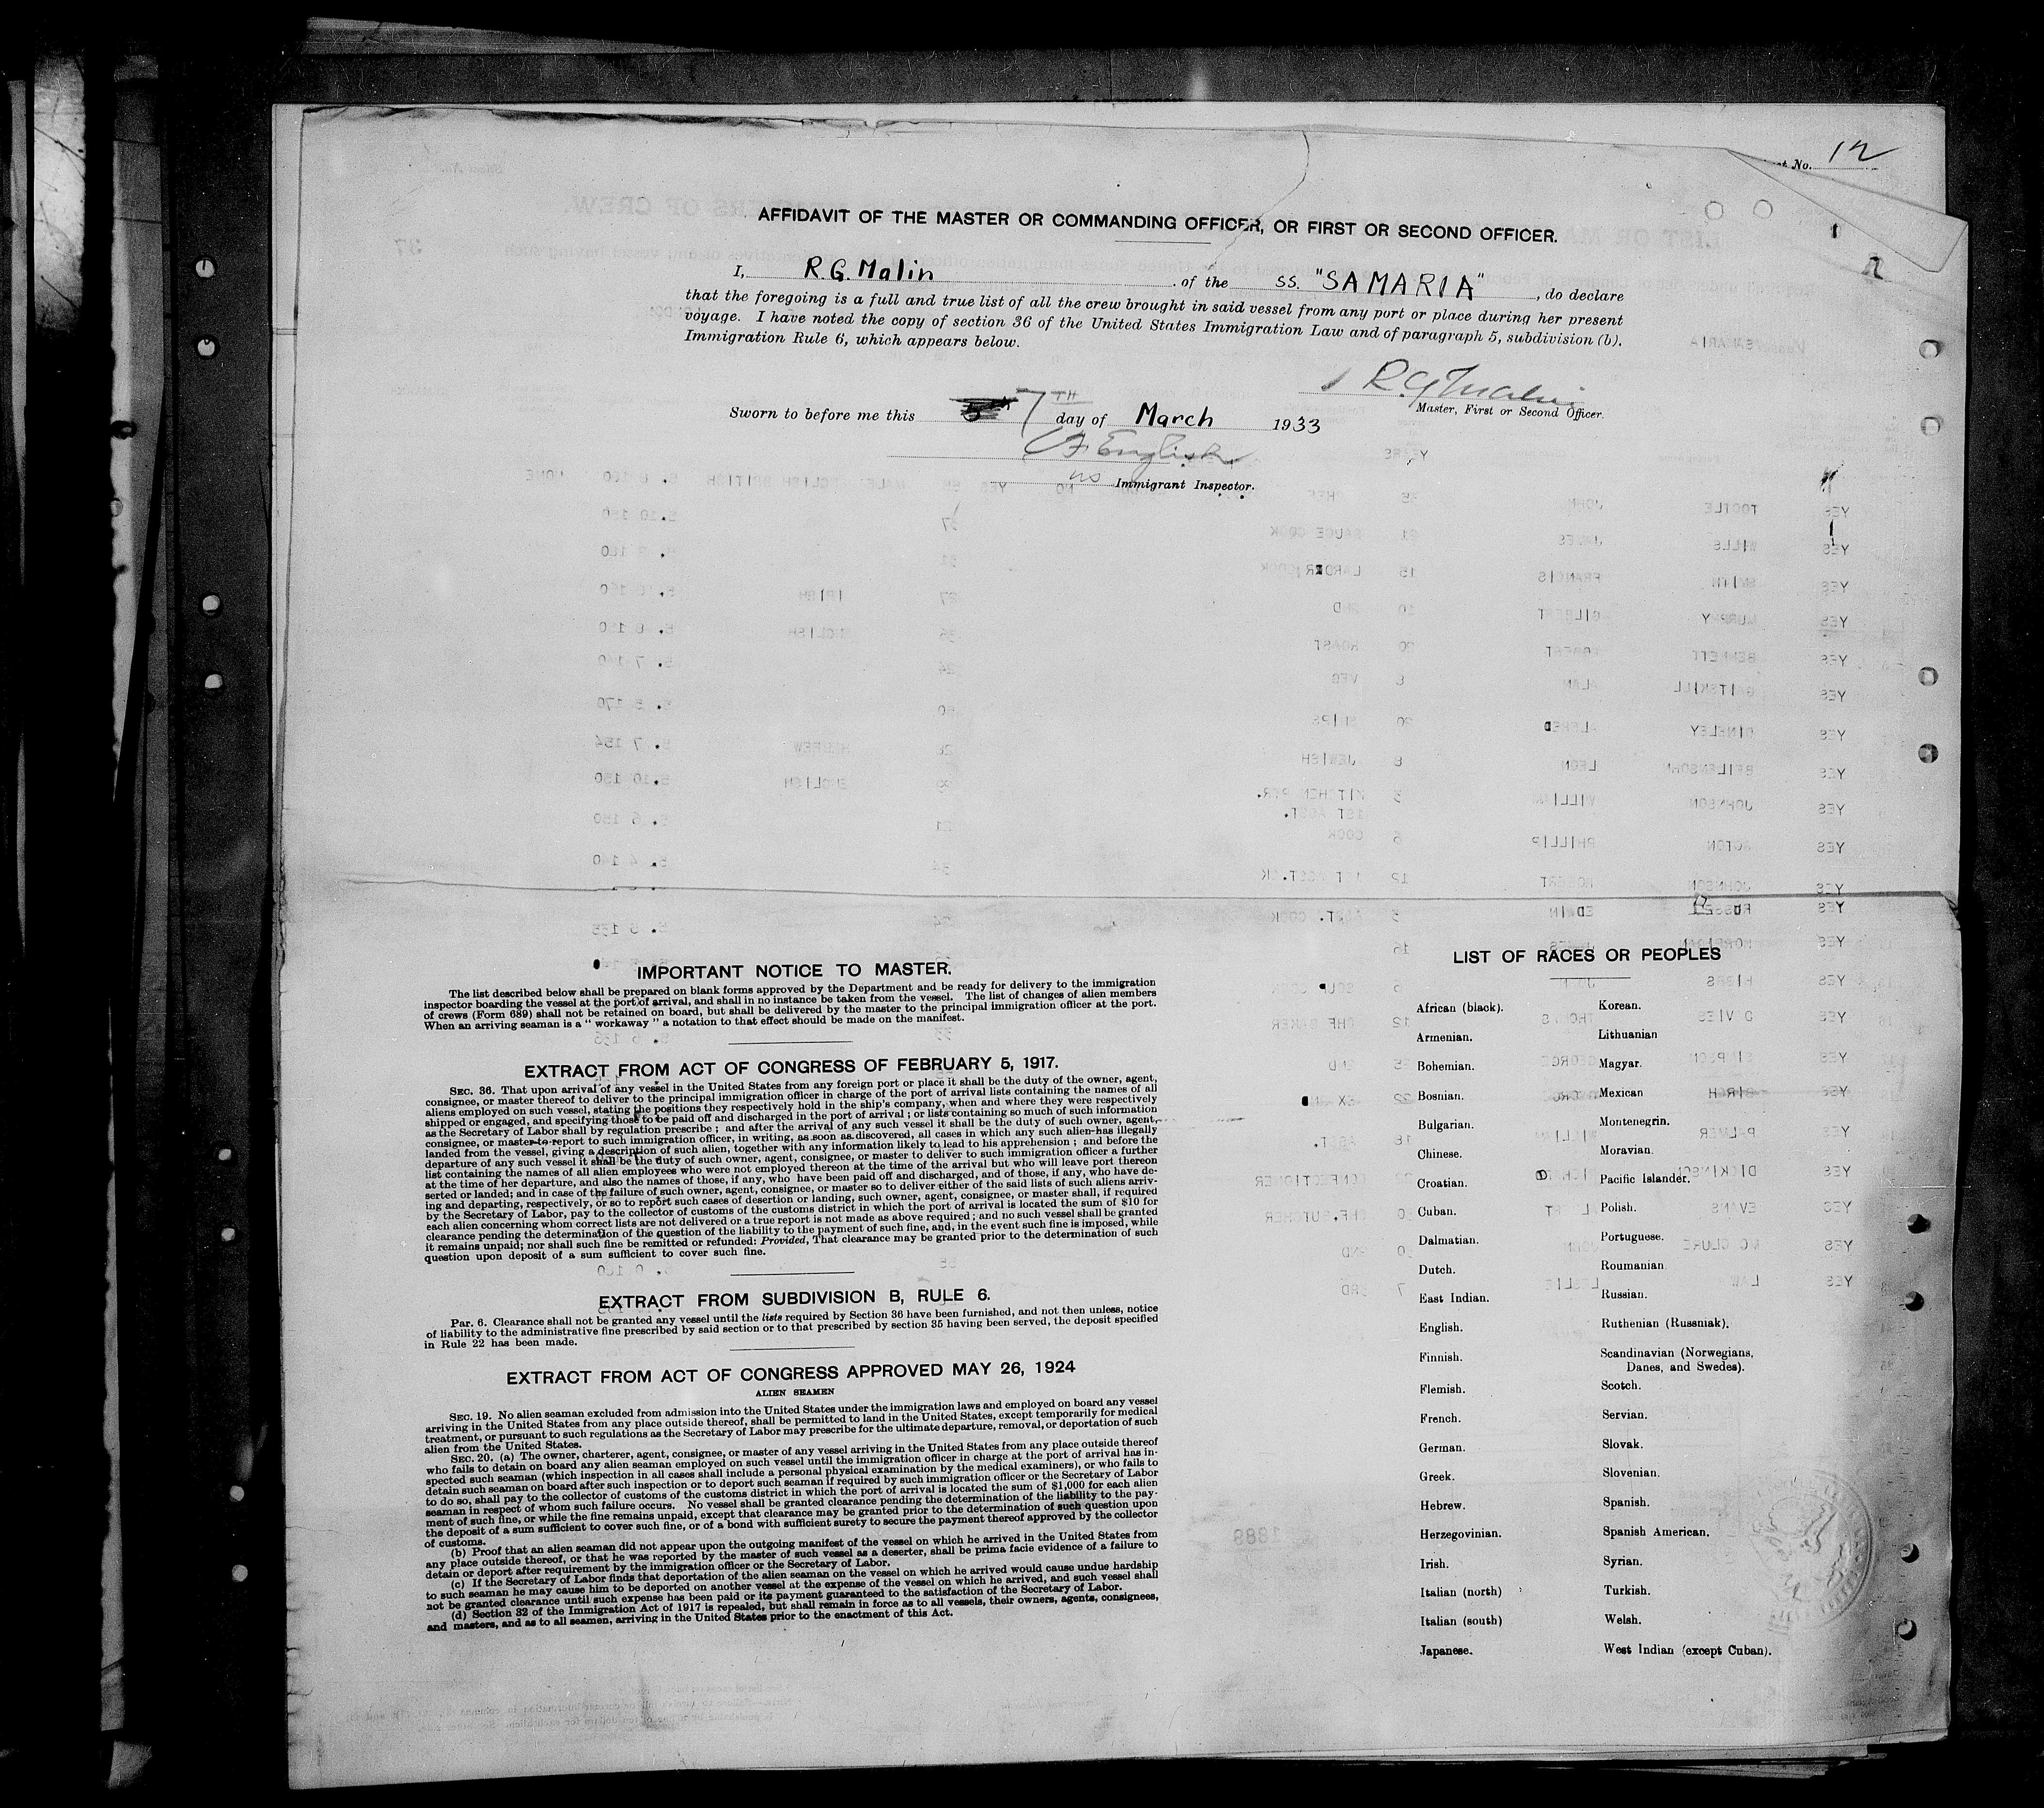 No. 12
AFFIDAVIT OF THE MASTER OR COMMANDING OFFICER, OR FIRST OR SECOND OFFICER.
I, R.G. Malin of the SS. "SAMARIA", do declare
that the foregoing is a full and true list of all the crew brought in said vessel from any port or place during her present
voyage. I have noted the copy of section 36 of the United States Immigration Law and of paragraph 5, subdivision (b),
Immigration Rule 6, which appears below.
R G Malin
Master, First or Second Officer.
Sworn to before me this 7TH day of March 1933
English
US Immigrant Inspector.
IMPORTANT NOTICE TO MASTER.
The list described below shall be prepared on blank forms approved by the Department and be ready for delivery to the immigration
inspector boarding the vessel at the port of arrival, and shall in no instance be taken from the vessel. The list of changes of alien members
of crews (Form 689) shall not be retained on board, but shall be delivered by the master to the principal immigration officer at the port.
When an arriving seaman is a " workaway " a notation to that effect should be made on the manifest.
EXTRACT FROM ACT OF CONGRESS OF FEBRUARY 5, 1917.
SEC. 36. That upon arrival of any vessel in the United States from any foreign port or place it shall be the duty of the owner, agent,
consignee, or master thereof to deliver to the principal immigration officer in charge of the port of arrival lists containing the names of all
aliens employed on such vessel, stating the positions they respectively hold in the ship's company, when and where they were respectively
shipped or engaged, and specifying those to be paid off and discharged in the port of arrival ; or lists containing so much of such information
as the Secretary of Labor shall by regulation prescribe ; and after the arrival of any such vessel it shall be the duty of such owner, agent,
consignee, or master to report to such immigration officer, in writing, as soon as discovered, all cases in which any such alien has illegally
landed from the vessel, giving a description of such alien, together with any information likely to lead to his apprehension ; and before the
departure of any such vessel it shall be the duty of such owner, agent, consignee, or master to deliver to such immigration officer a further
list containing the names of all alien employees who were not employed thereon at the time of the arrival but who will leave port thereon
at the time of her departure, and also the names of those, if any, who have been paid off and discharged, and of those, if any, who have de-
serted or landed; and in case of the failure of such owner, agent, consignee, or master so to deliver either of the said lists of such aliens arriv-
ing and departing, respectively, or so to report such cases of desertion or landing, such owner, agent, consignee, or master shall, if required
by the Secretary of Labor, pay to the collector of customs of the customs district in which the port of arrival is located the sum of $10 for
each alien concerning whom correct lists are not delivered or a true report is not made as above required ; and no such vessel shall be granted
clearance pending the determination of the question of the liability to the payment of such fine, and, in the event such fine is imposed, while
it remains unpaid; nor shall such fine be remitted or refunded: Provided, That clearance may be granted prior to the determination of such
question upon deposit of a sum sufficient to cover such fine.
EXTRACT FROM SUBDIVISION B, RULE 6.
Par. 6. Clearance shall not be granted any vessel until the lists required by Section 36 have been furnished, and not then unless, notice
of liability to the administrative fine prescribed by said section or to that prescribed by section 35 having been served, the deposit specified
in Rule 22 has been made.
EXTRACT FROM ACT OF CONGRESS APPROVED MAY 26, 1924
ALIEN SEAMEN
SEC. 19. No alien seaman excluded from admission into the United States under the immigration laws and employed on board any vessel
arriving in the United States from any place outside thereof, shall be permitted to land in the United States, except temporarily for medical
treatment, or pursuant to such regulations as the Secretary of Labor may prescribe for the ultimate departure, removal, or deportation of such
alien from the United States.
SEC. 20. (a) The owner, charterer, agent, consignee, or master of any vessel arriving in the United States from any place outside thereof
who fails to detain on board any alien seaman employed on such vessel until the immigration officer in charge at the port of arrival has in-
spected such seaman (which inspection in all cases shall include a personal physical examination by the medical examiners), or who fails to
detain such seaman on board after such inspection or to deport such seaman if required by such immigration officer or the Secretary of Labor
to do so, shall pay to the collector of customs of the customs district in which the port of arrival is located the sum of $1,000 for each alien
seaman in respect of whom such failure occurs. No vessel shall be granted clearance pending the determination of the liability to the pay-
ment of such fine, or while the fine remains unpaid, except that clearance may be granted prior to the determination of such question upon
the deposit of a sum sufficient to cover such fine, or of a bond with sufficient surety to secure the payment thereof approved by the collector
of customs.
(b) Proof that an alien seaman did not appear upon the outgoing manifest of the vessel on which he arrived in the United States from
any place outside thereof, or that he was reported by the master of such vessel as a deserter, shall be prima facie evidence of a failure to
detain or deport after requirement by the immigration officer or the Secretary of Labor.
(c) If the Secretary of Labor finds that deportation of the alien seaman on the vessel on which he arrived would cause undue hardship
to such seaman he may cause him to be deported on another vessel at the expense of the vessel on which he arrived, and such vessel shall
not be granted clearance until such expense has been paid or its payment guaranteed to the satisfaction of the Secretary of Labor.
(d) Section 32 of the Immigration Act of 1917 is repealed, but shall remain in force as to all vessels, their owners, agents, consignees,
and masters, and as to all seamen, arriving in the United States prior to the enactment of this Act.
LIST OF RACES OR PEOPLES
African (black).
Armenian.
Bohemian.
Bosnian.
Bulgarian.
Chinese.
Croatian.
Cuban.
Dalmatian.
Dutch.
East Indian.
English.
Finnish.
Flemish.
French.
German.
Greek.
Hebrew.
Herzegovinian.
Irish.
Italian (north)
Italian (south)
Japanese.
Korean.
Lithuanian
Magyar.
Mexican
Montenegrin.
Moravian.
Pacific Islander.
Polish.
Portuguese.
Roumanian
Russian.
Ruthenian (Russniak).
Scandinavian (Norwegians,
Danes, and Swedes).
Scotch.
Servian.
Slovak.
Slovenian.
Spanish.
Spanish American.
Syrian.
Turkish.
Welsh.
West Indian (except Cuban).